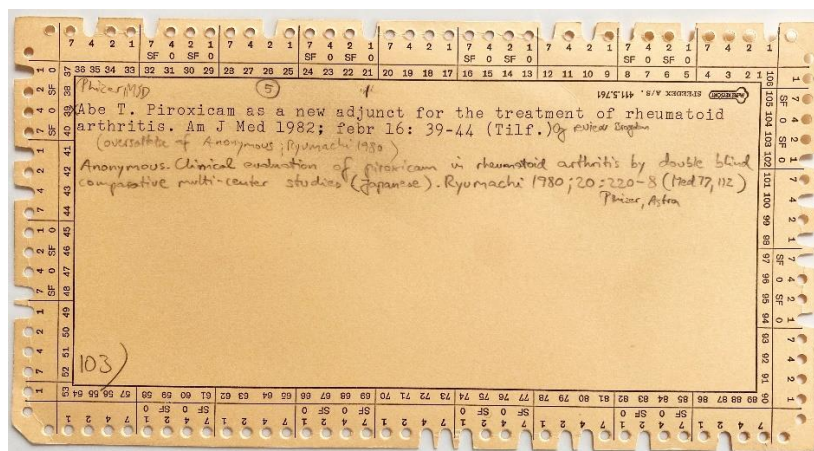 7 4 2 1 7 4 2 1 7 4 2 1 7 4 2 1 7 4 2 1 7 4 2 1 7 4 2 1 7 4 2 1 7 4 2 1
SF 0 SF 0 SF 0 SF 0 SF 0 SF 0 SF 0 SF 0
36 35 34 33 32 31 30 29 28 27 26 25 24 23 22 21 20 19 18 17 16 15 14 13 12 11 10 9 8 7 6 5 4 3 2 1
Phizer, MSD
5
SPEEDEX A/S . 411.5.761
Abe T. Piroxicam as a new adjunct for the treatment of rheumatoid
arthritis. Am J Med 1982; febr 16: 39-44 (Tilf.) Og
(oversættelse af Anonymous; Ryumachi 1980)
Anonymous. Clinical evaluation of piroxicam in rheumatoid arthritis by double blind
comparative multi-center studies (Japanese). Ryumachi 1980; 20: 220-8 (Med 77, 112)
Phizer, Astra
103)
37 38 39 40 41 42 43 44 45 46 47 48 49 50 51 52 53
106 105 104 103 102 101 100 99 98 97 96 95 94 93 92 91 90
54 55 56 57 58 59 60 61 62 63 64 65 66 67 68 69 70 71 72 73 74 75 76 77 78 79 80 81 82 83 84 85 86 87 88 89
0 SF 0 SF 0 SF 0 SF 0 SF 0 SF 0 SF 0 SF
1 2 4 7 1 2 4 7 1 2 4 7 1 2 4 7 1 2 4 7 1 2 4 7 1 2 4 7 1 2 4 7 1 2 4 7